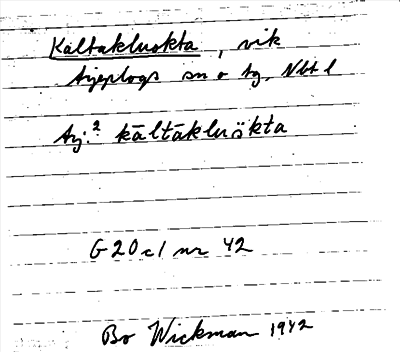 Kaltakluokta, vik
Arjeplogs sn o tg. Nbt l
Arj.² kāltākluökta
G 20 c1 nr 42
Bo Wickman 1942